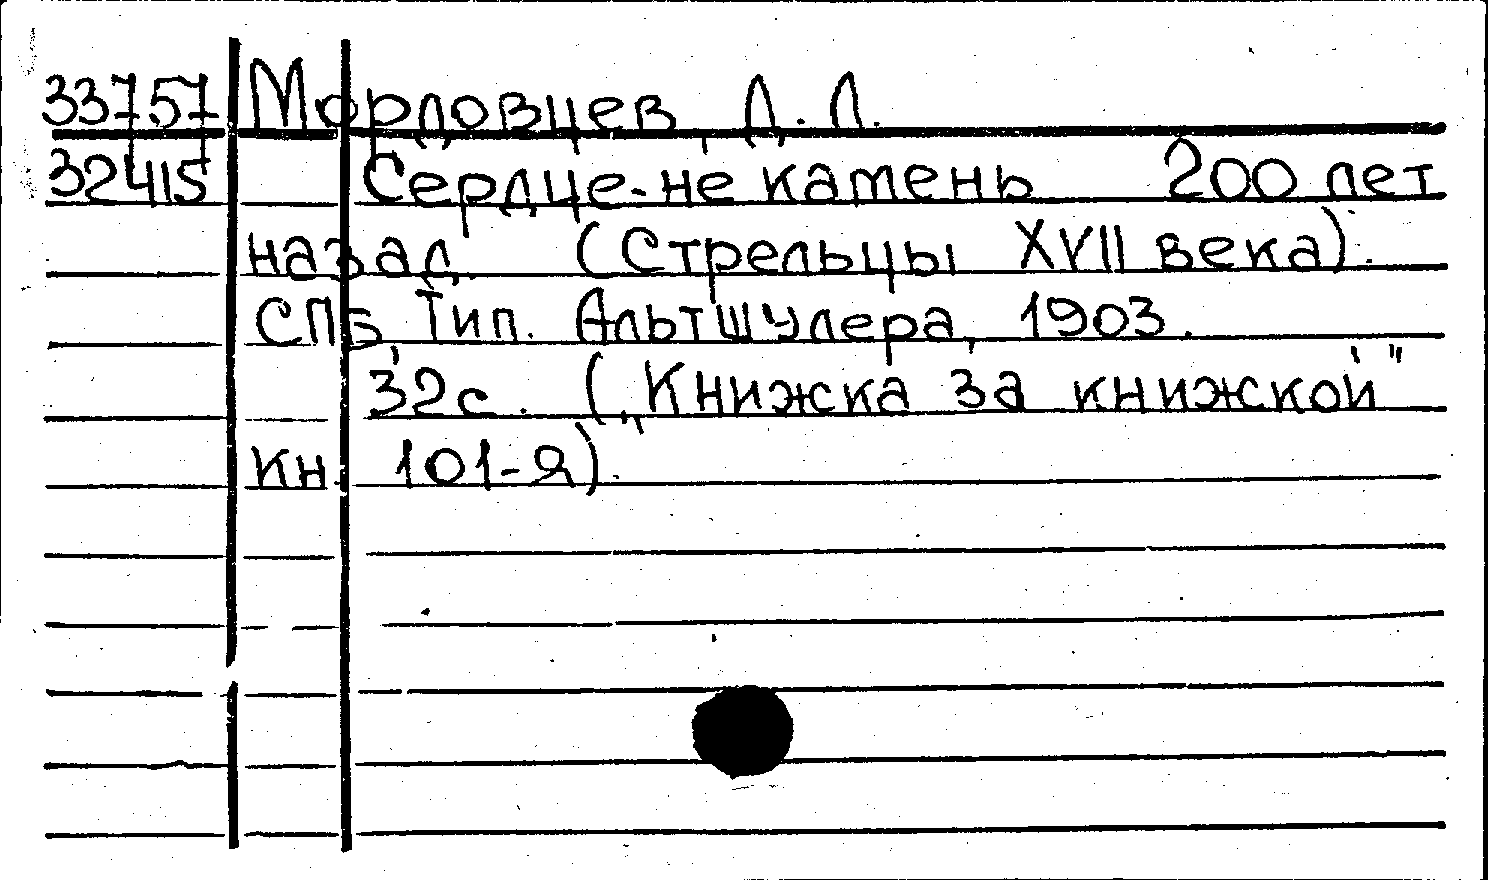 33757 Мордовцев, Д. Л.
32415 Сердце-не камень 200 лет
назад. (Стрельцы XVII века).
СПб, Тип. Альтшулера, 1903.
32с. („Книжка за книжкой"
Кн. 101-я).